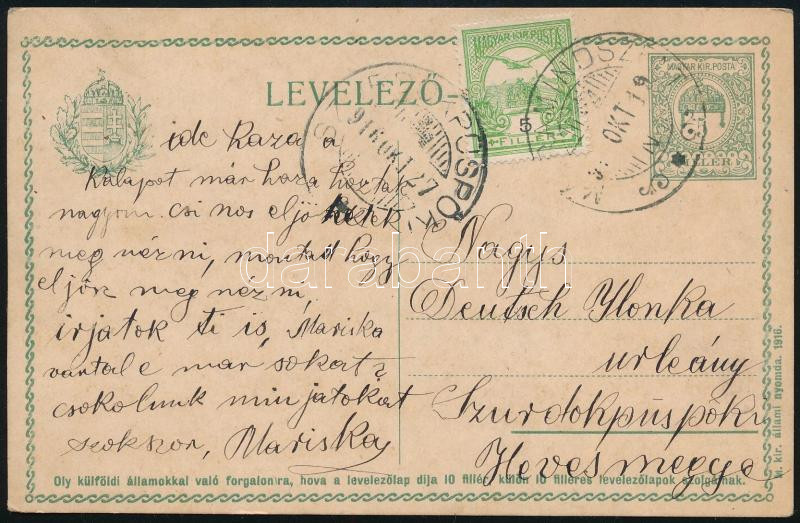 LEVELEZŐ-
MAGYAR KIR. POSTA
5
FILLÉR
MAGYAR KIR. POSTA
5
FILLÉR
916 OKT 27
OKT 19
ide haza a
kalapot már haza hoztak
nagyon csinos eljöhettek
meg nézni, montad hogy
eljön meg nézni,
irjatok ti is, Mariska
vartal e mar sokat?
csokolunk minjatokat
szokszor, Mariska
Nagys
Deutsch Ylonka
urleány
Szurdokpüspöki
Heves megye
darabanth
Oly külföldi államokkal való forgalomra, hova a levelezőlap díja 10 fillér, külön 10 filléres levelezőlapok szolgálnak.
M. kir. állami nyomda. 1916.